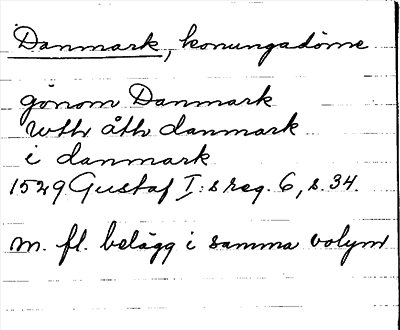 Danmark, konungadöme
gönom Danmark
wtħ åtħ danmark
i danmark
1529 Gustaf I:s reg. 6, s. 34.
m. fl. belägg i samma volym